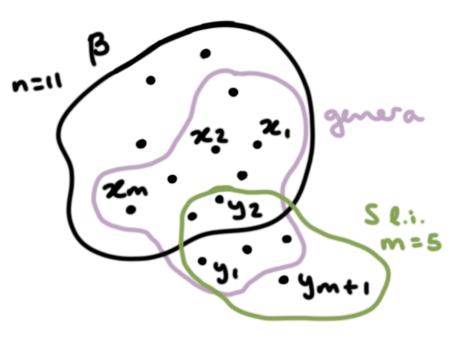 β
n=11
genera
x₂
x₁
xₘ
y₂
S l.i.
m=5
y₁
yₘ₊₁